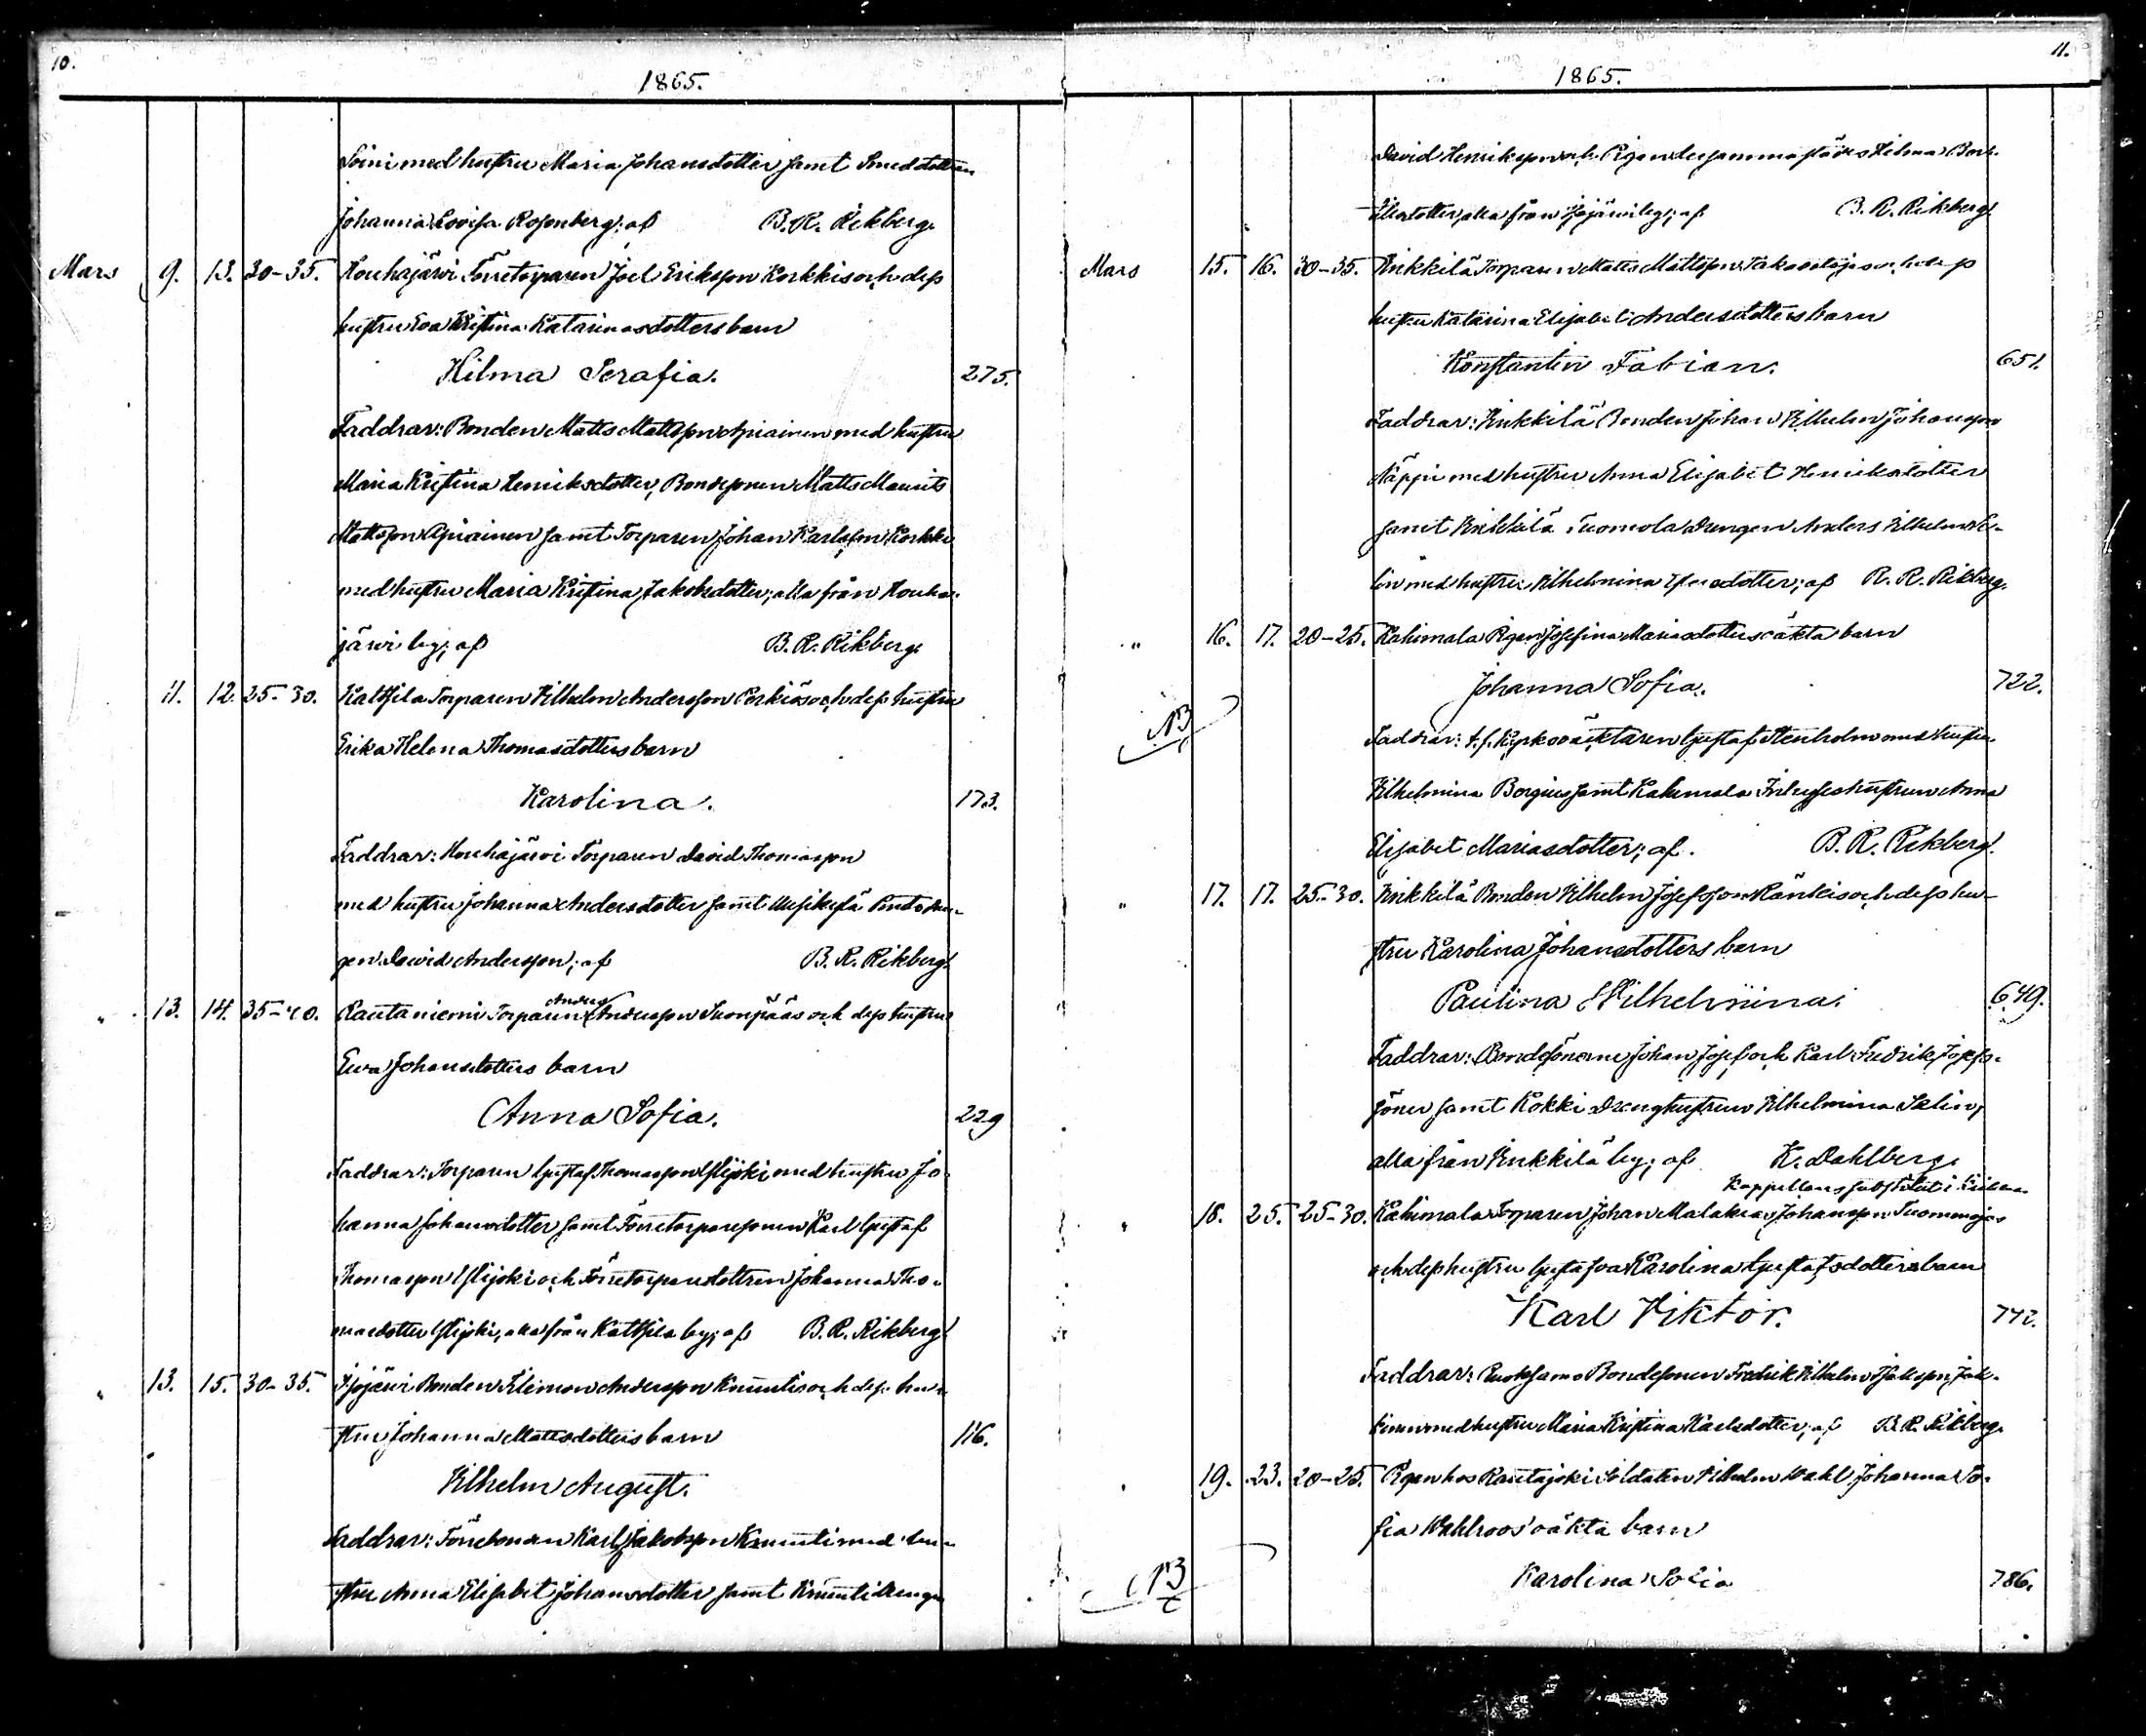 10.
1865.
Soini med hustru Maria Johansdotter samt Smedsdottren
Johanna Lovisa Rosenberg; af B. R. Rikberg.
Mars 9. 13. 30-35. Houhajärvi Förretorparen Joel Eriksson Korkkis och dess
hustru Eva Kristina Katarinasdotters barn
Hilma Serafia. 275.
Faddrar: Bonden Matts Mattsson Apiainen med hustru
Maria Kristina Henriksdotter, Bondesonen Matts Maurits
Mattsson Apiainen samt Torparen Johan Karlsson Korkki
med hustru Maria Kristina Jakobsdotter; alla från Houha-
järvi by; af B. R. Rikberg.
11. 12. 25-30. Kattsila Torparen Vilhelm Andersson Perkiös och dess hustru
Erika Helena Thomasdotters barn
Karolina. 173.
Faddrar: Houhajärvi Torparen David Thomasson
med hustru Johanna Andersdotter samt
gen David Andersson; af B. R. Rikberg.
" 13. 14. 35-40. Rautaniemi Torparen Anders Andersson Suonpääs och dess hustrus
Eva Johansdotters barn
Anna Sofia. 229
Faddrar: Torparen Gustaf Thomasson Ylijoki med hustru Jo-
hanna Johansdotter samt Förretorparesonen Karl Gustaf
Thomasson Ylijoki och Förretorparedottren Johanna Tho-
masdotter Ylijoki, alla från Kattsila by; af B. R. Rikberg.
" 13. 15. 30-35. Jyjärvi Bonden Klemon Andersson Knuutis och dess hu-
stru Johanna Mattsdotters barn 116.
Vilhelm August.
Faddrar: Förrebonden Karl Jakobsson Knuuti med hu-
stru Anna Elisabet Johansdotter samt Knuuti drengen
11.
1865.
David Henriksson och Pigan dersammastädes Hilma
alla från by; af B. R. Rikberg.
Mars 15. 16. 30-35. Kinkkilä Torparen Matts Mattsson och dess
hustru Katarina Elisabet Andersdotters barn
Konstantin Fabian. 651.
Faddrar: Kinkkilä Bonden Johan Vilhelm Johansson
Näppi med hustru Anna Elisabet Henriksdotter
samt Kinkkilä Tuomola Drengen Anders Vilhelm Se-
lin med hustru Vilhelmina af B. R. Rikberg.
" 16. 17. 20-25. Kahimala Pigan Josefina Mariasdotters oäkta barn
Johanna Sofia. 722.
NB
Faddrar: t.f. Kyrkoväktaren Gustaf Stenholm med hustru
Vilhelmina Borgius samt Kahimala Inhyseshustrun Anna
Elisabet Mariasdotter; af. B. R. Rikberg.
" 17. 17. 25-30. Kinkkilä Bonden Vilhelm Josefsson Ränkis och dess hu-
stru Karolina Johansdotters barn
Paulina Vilhelmina. 649.
Faddrar: Bondesönerne Johan Josef och Karl Fredrik Josefs-
söner samt Kokki Drenghustrun Vilhelmina Selin,
alla från Kinkkilä by; af K. Dahlberg.
Kappellans substitut i
" 18. 25. 25-30. Kahimala Torparen Johan Malakias Johansson Tuommojas
och dess hustru Gustafva Karolina Gustafsdotters barn
Karl Viktor. 742.
Faddrar: Ruotsamo Bondesonen Fredrik Vilhelm
med hustru Maria Kristina Karlsdotter; af B. R. Rikberg.
" 19. 23. 20-25. Pigan hos Rautajoki Soldaten Vilhelm Wahl Johanna So-
fia Wahlroos' oäkta barn
NB
Karolina Sofia 786.